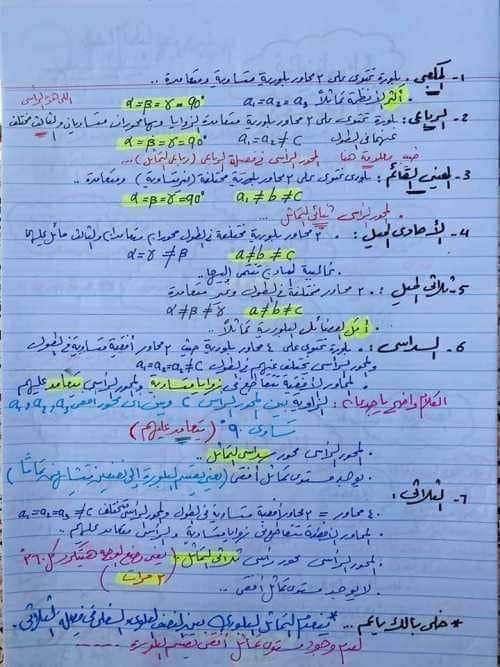 ١- المكعبي : بلورة تحتوى على ٣ محاور بلورية متساوية ومتعامدة ..
. أكثر الأنظمة تماثلاً a₁ = a₂ = a₃ α = β = γ = 90°
٢- الرباعى : بلورة تحتوى على ٣ محاور بلورية متعامدة الزوايا محوران متساويان والثالث مختلف
عنهما فى الطول a₁ = a₂ ≠ c α = β = γ = 90°
المحور الرأسى فى فصيلة الرباعى (رباعى التماثل) ...
٣- المعينى القائم : بلورة تحتوى على ٣ محاور بلورية مختلفة (غير متساوية) ومتعامدة ..
a₁ ≠ b ≠ c α = β = γ = 90°
. المحور الرأسى ثنائى التماثل ...
٤- الأحادى الميل : ٣ محاور بلورية مختلفة فى الطول محوران متعامدان والثالث مائل عليهما
a ≠ b ≠ c α = γ ≠ β
. غالبية المعادن تنتمى إليها ..
٥- ثلاثى الميل : ٣ محاور مختلفة فى الطول وغير متعامدة
a ≠ b ≠ c α ≠ β ≠ γ
. أقل الفصائل البلورية تماثلاً ..
٦- السداسى : . بلورة تحتوى على ٤ محاور بلورية حيث ٣ محاور أفقية متساوية فى الطول
والمحور الرأسى يختلف عنهم فى الطول a₁ = a₂ = a₃ ≠ c
. المحاور الأفقية تتقاطع فى زوايا متساوية والمحور الرأسى متعامد عليهم
الزاوية بين المحور الرأسى c وبين أى محور أفقى a₁, a₂, a₃
تساوى ٩٠° (متعامد عليهم)
. المحور الرأسى محور سداسى التماثل ..
. يوجد مستوى تماثل أفقى (يعنى يقسم البلورة إلى نصفين متشابهين تماماً)
٧- الثلاثى :
. ٤ محاور = ٣ محاور أفقية متساوية فى الطول والمحور الرأسى مختلف a₁ = a₂ = a₃ ≠ c
. المحاور الأفقية تتقاطع فى زوايا متساوية والرأسى متعامد عليهم ..
. المحور الرأسى محور رأسى ثلاثى التماثل
(٣ مرات)
. لا يوجد مستوى تماثل أفقى ...
* خلى بالك يا عم ... * ينعدم التماثل البلورى بين النصف العلوى والسفلى فى فصيلة الثلاثى .
لعدم وجود مستوى تماثل أفقى يقسم البلورة